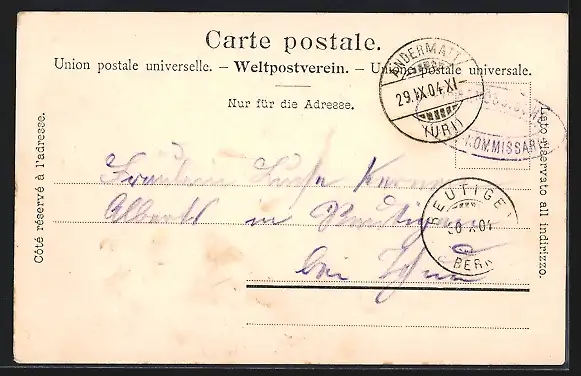 Carte postale.
Union postale universelle. – Weltpostverein. – Unione postale universale.
Nur für die Adresse.
Côté réservé à l'adresse.
Lato riservato all indirizzo.
ANDERMATT
29.IX.04.XI–
(URI)
KOMMISSAR
Fräulein
in Reutigen
bei
REUTIGEN
0 X 04
BERN